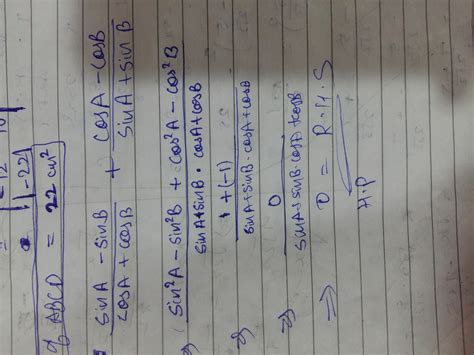 12 10
|-22|
of ABCD = 22 cm²
sinA - sinB / cosA + cosB + cosA - cosB / sinA + sinB
⇒ sin²A - sin²B + cos²A - cos²B / sinA + sinB · cosA + cosB
⇒ 1 + (-1) / sinA + sinB · cosA + cosB
⇒ 0 / sinA + sinB · cosA + cosB
⇒ 0 = R.H.S
H.P